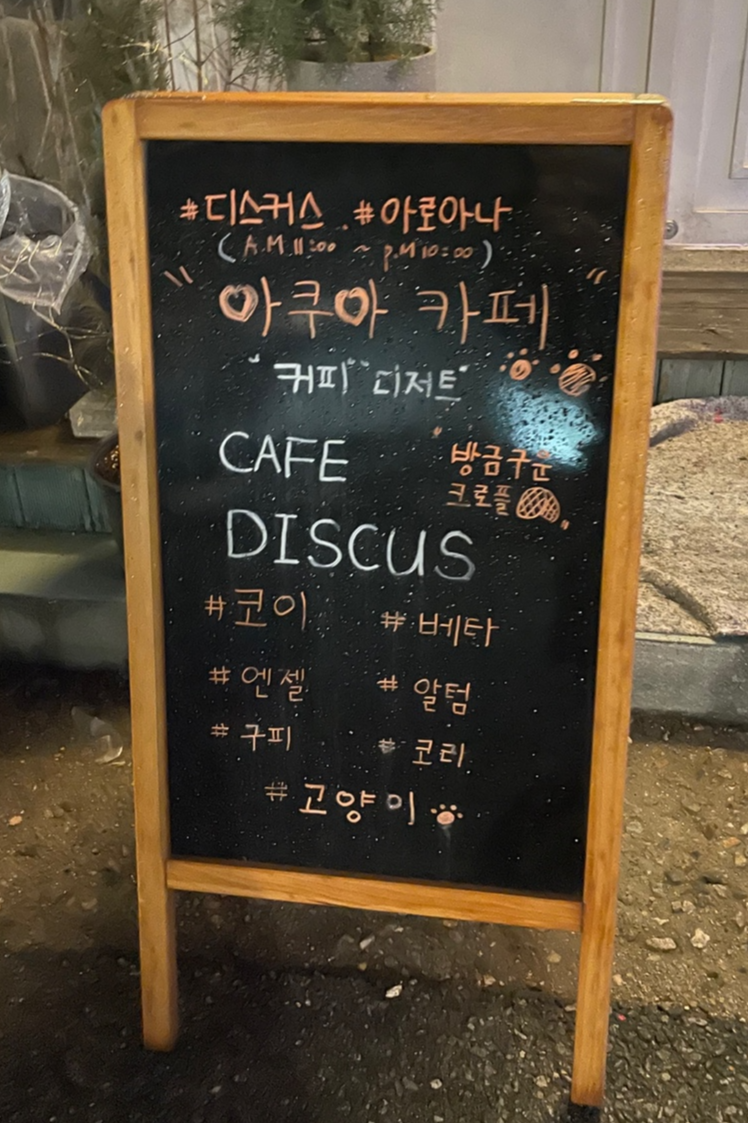 #디스커스 #아로아나
(A.M 11:00 ~ p.M 10:00)
"아쿠아 카페"
"커피" "디저트"
CAFE
"방금구운
크로플"
DISCUS
#코이 #베타
#엔젤 #알텀
#구피 #코리
#고양이